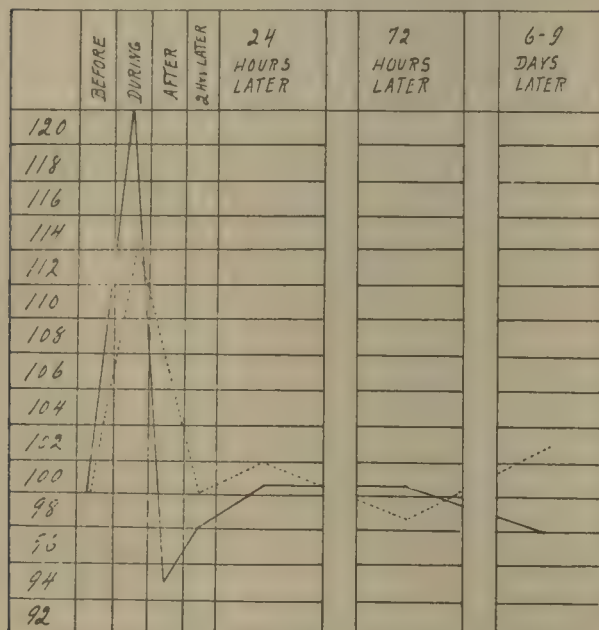 BEFORE
DURING
AFTER
2 Hrs LATER
24
HOURS
LATER
72
HOURS
LATER
6-9
DAYS
LATER
120
118
116
114
112
110
108
106
104
102
100
98
96
94
92